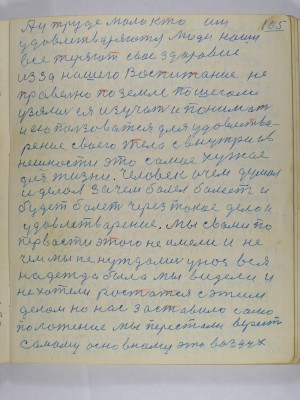 А у труде мало кто им 105
удовлетваряютя люди наши
все теряют свое здоровие
из за нашего Воспитание не
правелно по земле пошегали
взялися изучат и понимат
и его ползоватся для удовлетва
рение своего тела с внутри с в
нешности это самае хужае
для жизни. Человек о чем думал
и делал за чем болел балеет и
будет балет через такое дело и
удовлетварение. Мы с вами по
первасти этого не имели и не
чем мы не нуждалис у нас вся
надежда была мы видели и
не хотели ростатся с этим
делом но нас заставило само
положение мы перестали верит
самому основному это воздух